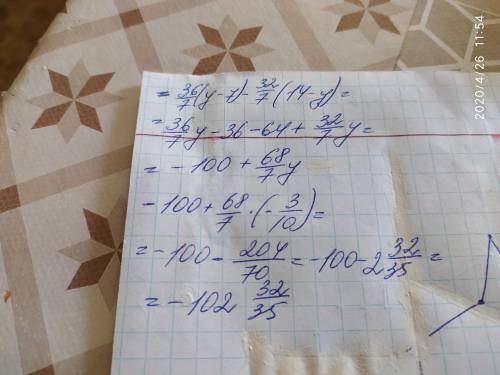 2020/4/26 11:54
= 36/7 (y - 7) - 32/7 (14 - y) =
= 36/7 y - 36 - 64 + 32/7 y =
= -100 + 68/7 y
-100 + 68/7 · (- 3/10) =
= -100 - 204/70 = -100 - 2 32/35 =
= -102 32/35